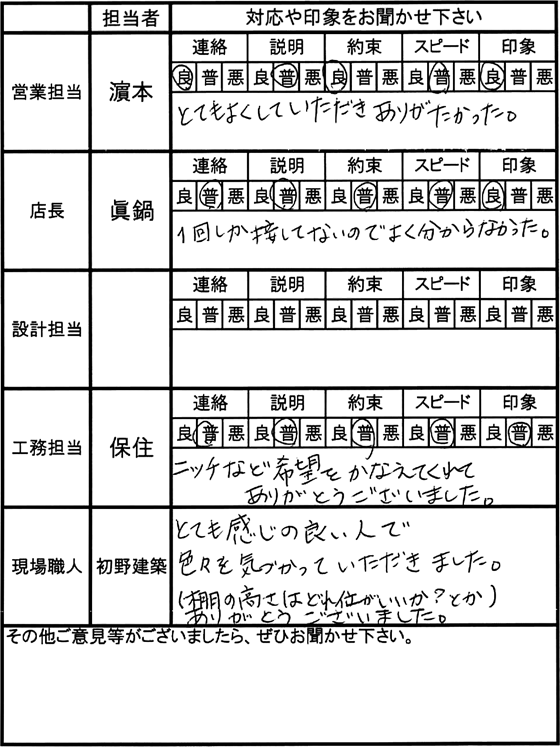 担当者 対応や印象をお聞かせ下さい
連絡 説明 約束 スピード 印象
営業担当 濵本 良 普 悪 良 普 悪 良 普 悪 良 普 悪 良 普 悪
とてもよくしていただきありがたかった。
連絡 説明 約束 スピード 印象
店長 眞鍋 良 普 悪 良 普 悪 良 普 悪 良 普 悪 良 普 悪
1回しか接してないのでよく分からなかった。
連絡 説明 約束 スピード 印象
設計担当 良 普 悪 良 普 悪 良 普 悪 良 普 悪 良 普 悪
連絡 説明 約束 スピード 印象
工務担当 保住 良 普 悪 良 普 悪 良 普 悪 良 普 悪 良 普 悪
ニッチなど希望をかなえてくれて
ありがとうございました。
現場職人 初野建築
とても感じの良い人で
色々を気づかっていただきました。
(棚の高さはどれ位がいいか?とか)
ありがとうございました。
その他ご意見等がございましたら、ぜひお聞かせ下さい。